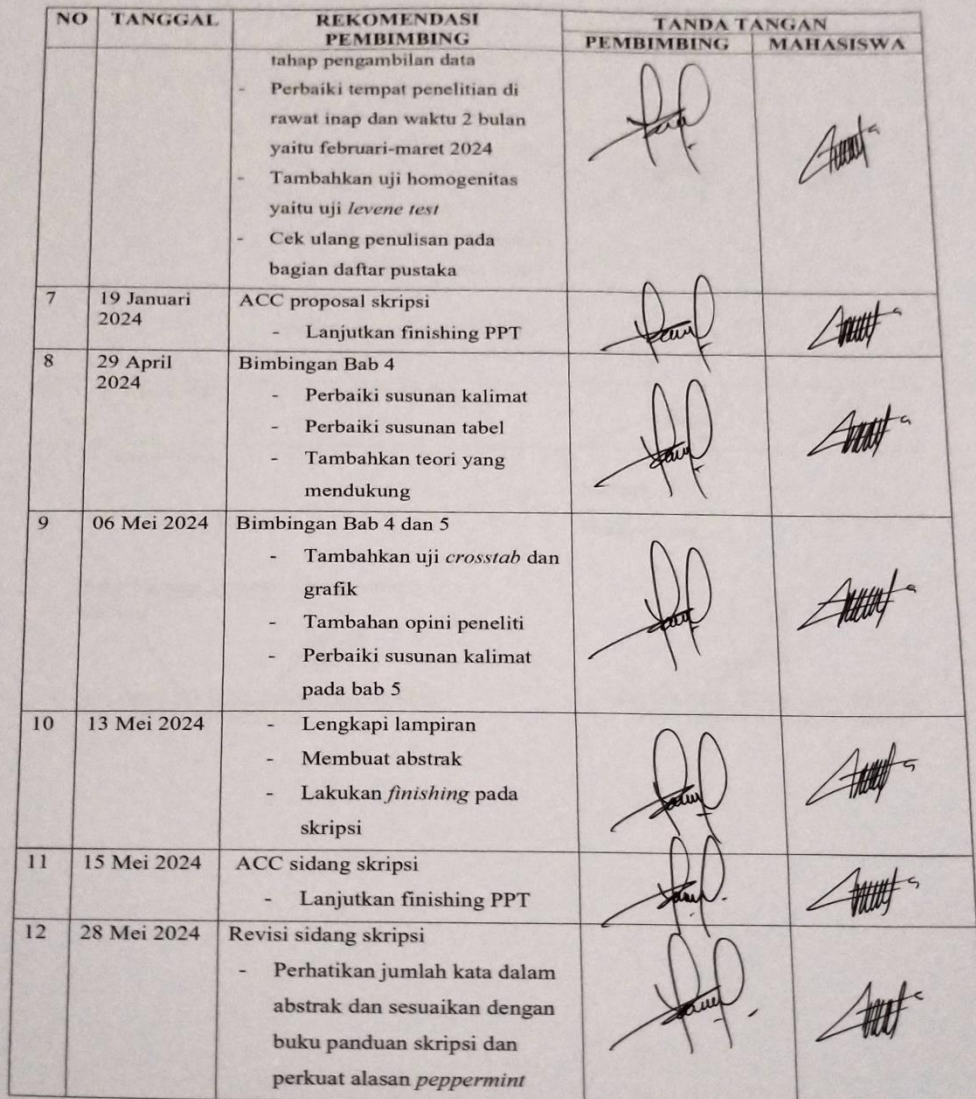 NO TANGGAL REKOMENDASI PEMBIMBING TANDA TANGAN
PEMBIMBING MAHASISWA
tahap pengambilan data
- Perbaiki tempat penelitian di
rawat inap dan waktu 2 bulan
yaitu februari-maret 2024
- Tambahkan uji homogenitas
yaitu uji levene test
- Cek ulang penulisan pada
bagian daftar pustaka
7 19 Januari 2024 ACC proposal skripsi
- Lanjutkan finishing PPT
8 29 April 2024 Bimbingan Bab 4
- Perbaiki susunan kalimat
- Perbaiki susunan tabel
- Tambahkan teori yang
mendukung
9 06 Mei 2024 Bimbingan Bab 4 dan 5
- Tambahkan uji crosstab dan
grafik
- Tambahan opini peneliti
- Perbaiki susunan kalimat
pada bab 5
10 13 Mei 2024 - Lengkapi lampiran
- Membuat abstrak
- Lakukan finishing pada
skripsi
11 15 Mei 2024 ACC sidang skripsi
- Lanjutkan finishing PPT
12 28 Mei 2024 Revisi sidang skripsi
- Perhatikan jumlah kata dalam
abstrak dan sesuaikan dengan
buku panduan skripsi dan
perkuat alasan peppermint